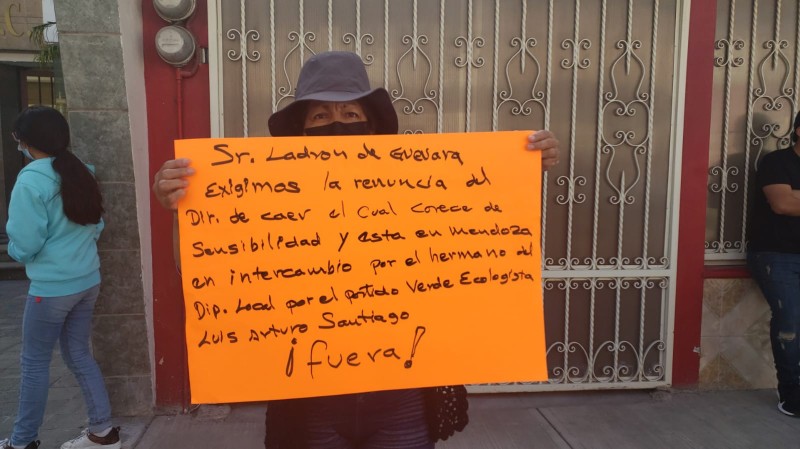 Sr. Ladron de Guevara
exigimos la renuncia del
Dir. de caev el cual corece de
Sensibilidad y esta en mendoza
en intercambio por el hermano del
Dip. Local por el partido Verde Ecologista
Luis Arturo Santiago
¡fuera!